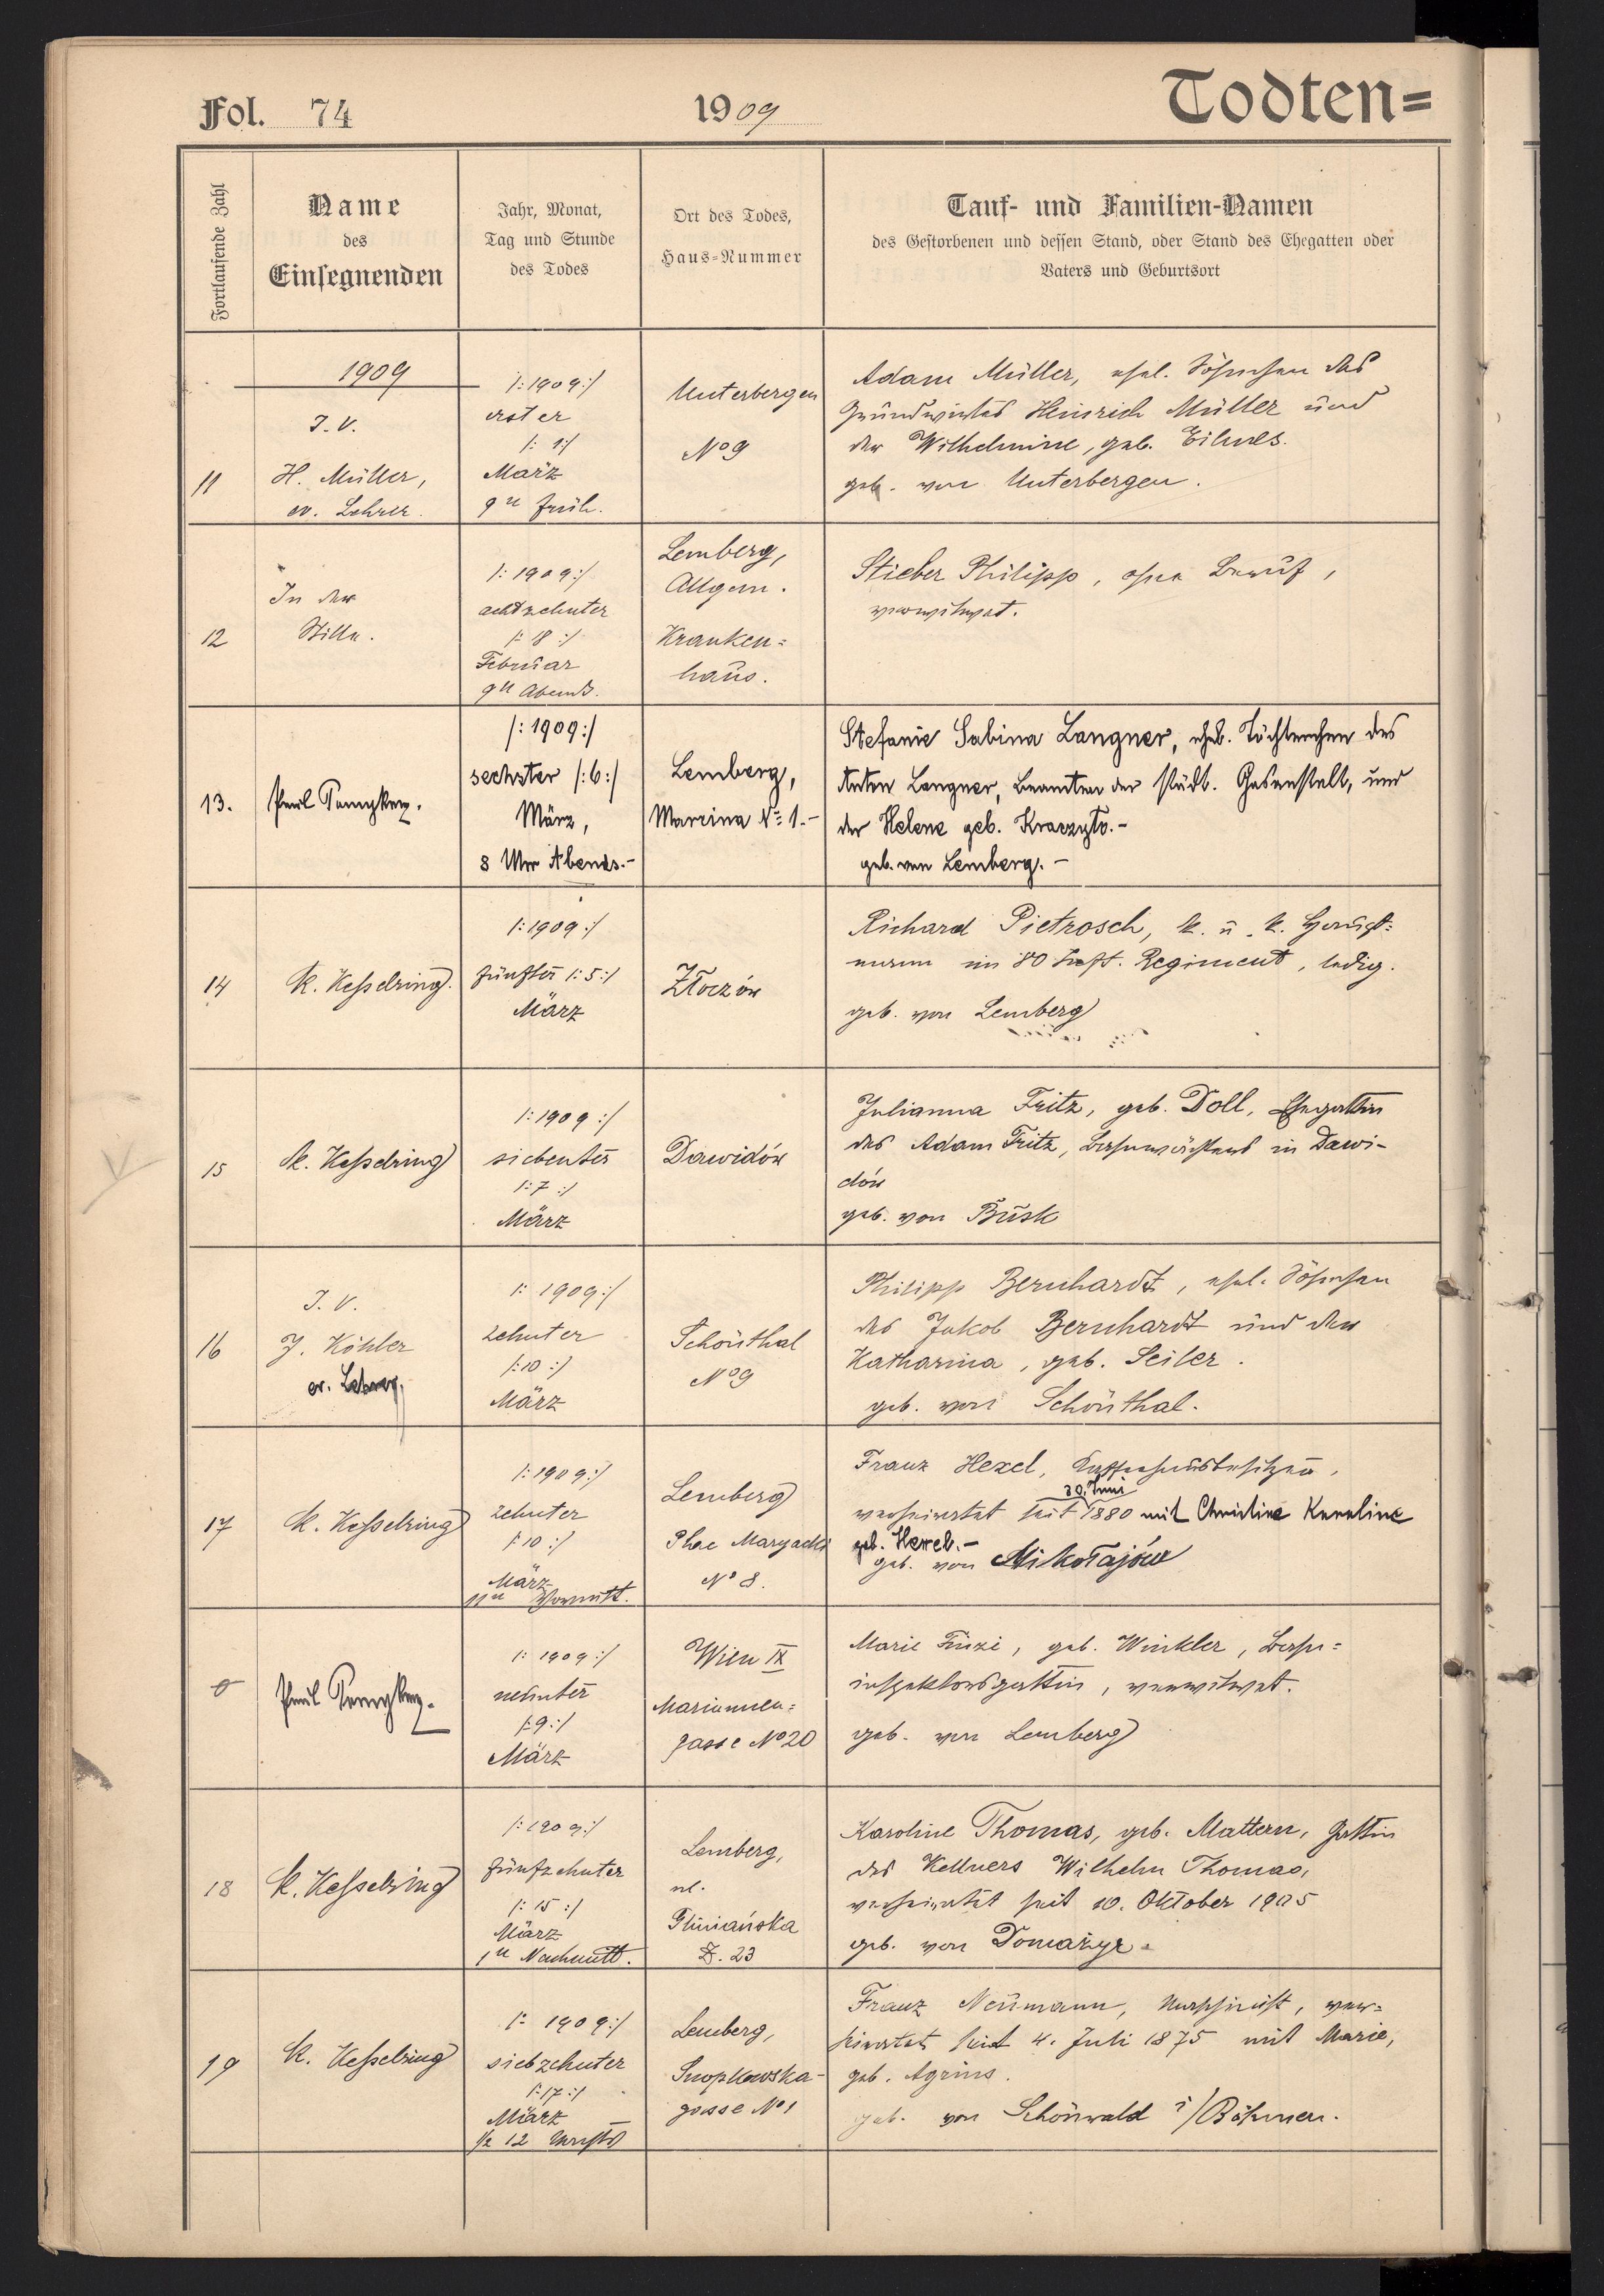 Fol. 74
1909
Todten=
Fortlaufende Zahl
Name
des
Einsegnenden
Jahr, Monat,
Tag und Stunde
des Todes
Ort des Todes,
Haus-Nummer
Tauf- und Familien-Namen
des Gestorbenen und dessen Stand, oder Stand des Ehegatten oder
Vaters und Geburtsort
11
1909
I. V.
H. Müller,
ev. Lehrer.
/:1909:/
erster
/: 1:/
März
9 u früh.
Unterbergen
No 9
Adam Müller, ehel. Söhnchen des
Grundwirtes Heinrich Müller und
der Wilhelmine, geb. Eilmes.
geb. von Unterbergen.
12
In der
Stille.
/:1909:/
achtzehnter
/: 18 :/
Februar
9 u Abends.
Lemberg,
Allgem.
Kranken=
haus.
Stieber Philipp, ohne Beruf,
verwitwet.
13.
/:1909:/
sechster /:6:/
März,
8 Uhr Abends.-
Lemberg,
No 1.-
Stefanie Sabina Langner, ehel. Töchterchen des
Anton Langner, Beamten der städt. Gasanstalt, und
der Helene geb.
geb. von Lemberg.-
14
K. Kesselring.
/:1909:/
fünfter /:5:/
März
Złoczów
Richard Pietrosch, k. u. k. Haupt=
mann im 80 Inft. Regiment, ledig.
geb. von Lemberg
15
K. Kesselring
/:1909:/
siebenter
/:7:/
März
Dawidów
Julianna Fritz, geb. Doll, Ehegattin
des Adam Fritz, Bahnwächters in Dawi-
dów
geb. von Busk
16
I. V.
J. Köhler
ev. Lehrer,
/: 1909:/
zehnter
/:10:/
März
Schönthal
No 9
Philipp Bernhardt, ehel. Söhnchen
des Jakob Bernhardt und der
Katharina, geb. Seiler.
geb. von Schönthal.
17
K. Kesselring
/:1909:/
zehnter
/:10:/
März
11 u Vormitt.
Lemberg
Plac Maryacki
No 8.
Franz Hexel, Kaffeehausbesitzer,
30. Juni
verheiratet seit 1880 mit Christine Karoline
geb.
geb. von Mikołajów
0
/: 1909:/
neunter
/:9:/
März
Wien IX
Mariannen=
gasse No 20
Marie Finzi, geb. Winkler, Bahn=
inspektorsgattin, verwitwet.
geb. von Lemberg
18
K. Kesselring
/:1909:/
fünfzehnter
/: 15 :/
März
1 u Nachmitt.
Lemberg,
ul.
Gliniańska
Z. 23
Karoline Thomas, geb. Mattern, Gattin
des Kellners Wilhelm Thomas,
verheiratet seit 10. Oktober 1905
geb. von Domażyr.
19
K. Kesselring
/: 1909:/
siebzehnter
/:17:/
März
1/2 12
Lemberg,
Snopkowska-
gasse No 1
Franz Neumann, Maschinist, ver=
heiratet seit 4. Juli 1875 mit Marie,
geb. Agrins.
geb. von Schönwald i/Böhmen.